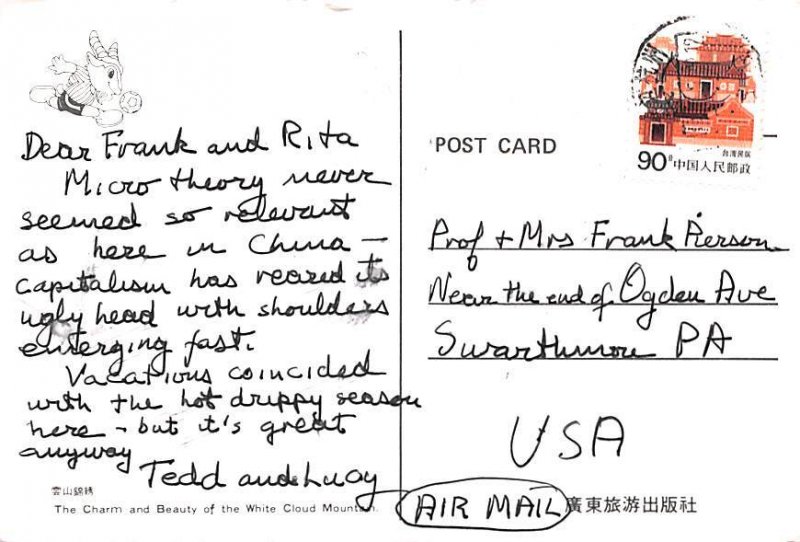 Dear Frank and Rita
Micro theory never
seemed so relevant
as here in China —
capitalism has reared its
ugly head with shoulders
emerging fast.
Vacations coincided
with the hot drippy season
here - but it's great
anyway
Tedd and Lucy
雲山錦綉
The Charm and Beauty of the White Cloud Mountain
POST CARD
台湾民居
90分 中国人民邮政
Prof + Mrs Frank Pierson
Near the end of Ogden Ave
Swarthmore PA
USA
AIR MAIL
廣東旅游出版社